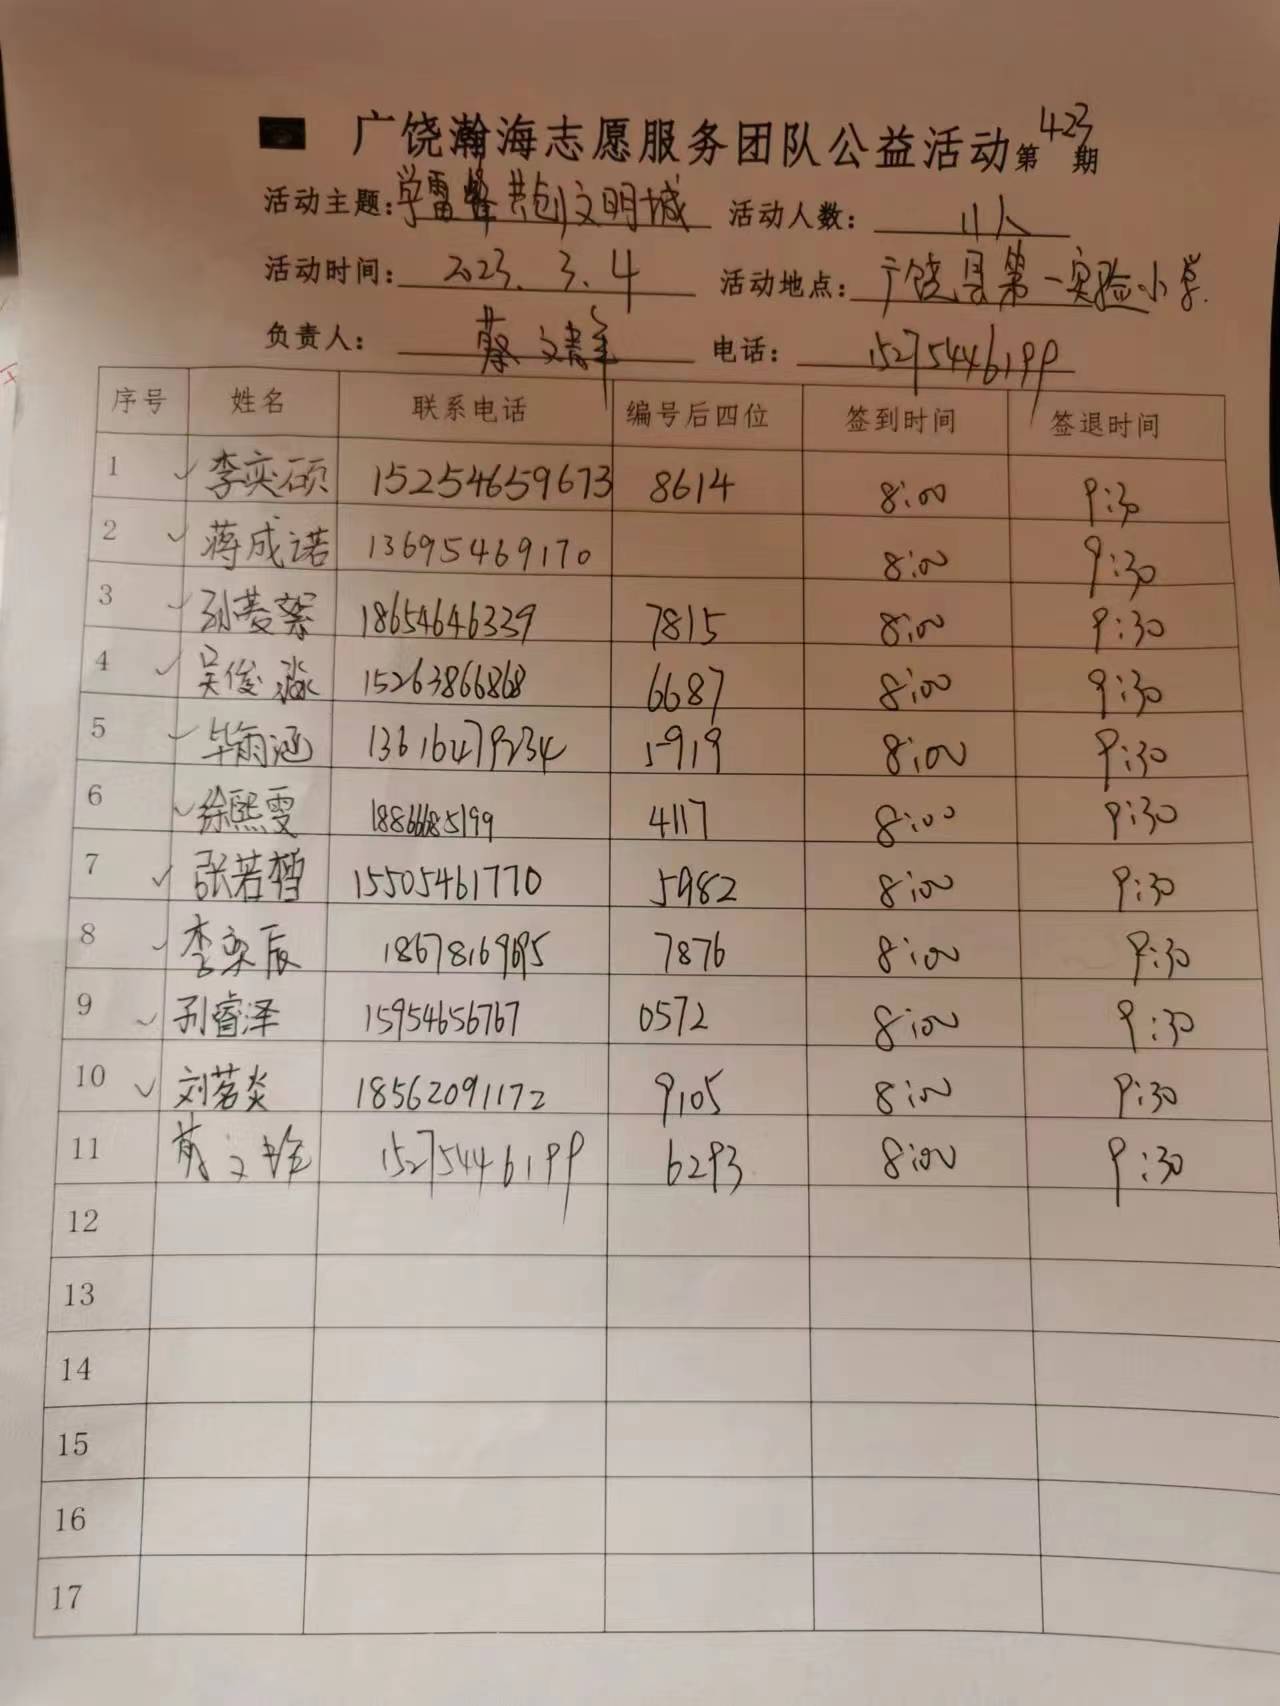 广饶瀚海志愿服务团队公益活动第423期
活动主题：学雷锋共创文明城 活动人数： 11人
活动时间： 2023.3.4 活动地点： 广饶县第一实验小学
负责人： 蔡文 电话： 15275446199
序号 姓名 联系电话 编号后四位 签到时间 签退时间
1 ✓ 李奕硕 15254659673 8614 8:00 9:30
2 ✓ 蒋成诺 13695469170 8:00 9:30
3 ✓ 孙菱 18654646339 7815 8:00 9:30
4 ✓ 吴俊淼 15263866868 6687 8:00 9:30
5 ✓ 毕雨涵 13616479234 5919 8:00 9:30
6 ✓ 徐熙雯 18866685199 4117 8:00 9:30
7 ✓ 张若晳 15505461770 5982 8:00 9:30
8 ✓ 李奕辰 7876 8:00 9:30
9 ✓ 孙睿泽 15954656767 0572 8:00 9:30
10 ✓ 刘茗炎 18562091172 9105 8:00 9:30
11 蔡文 15275446199 6293 8:00 9:30
12
13
14
15
16
17